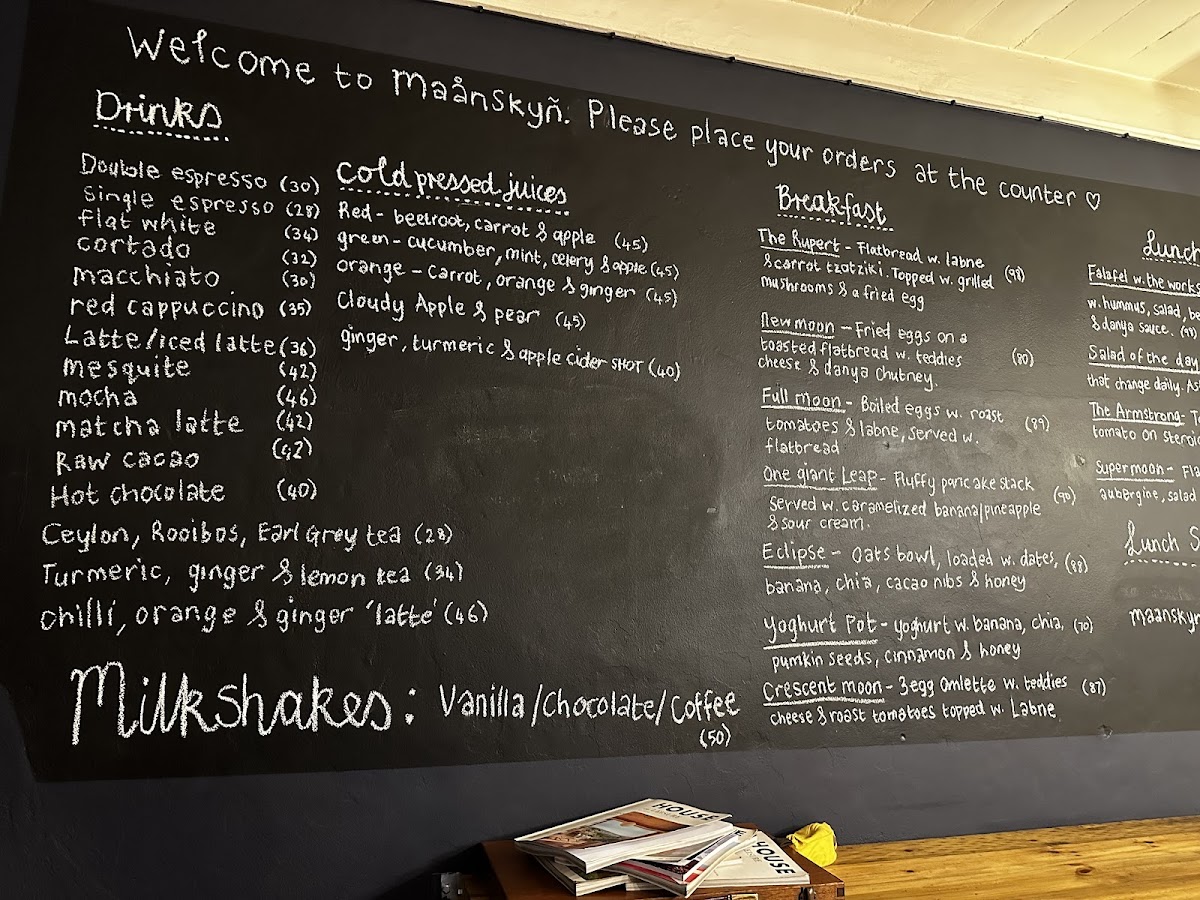 Welcome to Maånskyñ. Please place your orders at the counter ♡
Drinks
Double espresso (30)
Single espresso (28)
flat white (34)
cortado (32)
macchiato (30)
red cappuccino (35)
Latte/iced latte (36)
mesquite (42)
mocha (46)
matcha latte (42)
Raw cacao (42)
Hot chocolate (40)
Ceylon, Rooibos, Earl Grey tea (28)
Turmeric, ginger & lemon tea (34)
chilli, orange & ginger 'latte' (46)
Milkshakes: Vanilla/Chocolate/Coffee
(50)
Cold pressed juices
Red - beetroot, carrot & apple (45)
green - cucumber, mint, celery & apple (45)
orange - carrot, orange & ginger (45)
Cloudy Apple & pear (45)
ginger, turmeric & apple cider SHOT (40)
Breakfast
The Rupert - Flatbread w. labne (98)
& carrot tzatziki. Topped w. grilled
mushrooms & a fried egg
New moon - Fried eggs on a
toasted flatbread w. teddies (80)
cheese & danya chutney.
Full moon - Boiled eggs w. roast (89)
tomatoes & labne, served w.
flatbread
One giant Leap - Fluffy pancake stack (90)
served w. caramelized banana/pineapple
& sour cream.
Eclipse - Oats bowl, loaded w. dates, (88)
banana, chia, cacao nibs & honey
Yoghurt Pot - yoghurt w. banana, chia, (70)
pumkin seeds, cinnamon & honey
Crescent moon - 3 egg omlette w. teddies (87)
cheese & roast tomatoes topped w. Labne
Lunch
Falafel w. the works
w. hummus, salad, be
& danya sauce.
Salad of the day
that change daily. As
The Armstrong - T
tomato on steroi
Supermoon - Fla
aubergine, salad
Lunch S
maanskyn
HOUSE
HOUSE